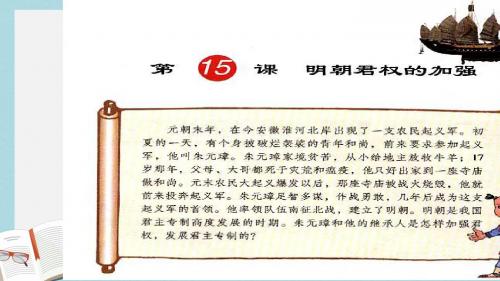 第 15 课 明朝君权的加强
元朝末年，在今安徽淮河北岸出现了一支农民起义军。初
夏的一天，有个身披破烂袈裟的青年和尚，前来要求参加起义
军，他叫朱元璋。朱元璋家境贫苦，从小给地主放牧牛羊；17
岁那年，父母、大哥都死于灾荒和瘟疫，他只好出家到一座寺庙
做和尚。元末农民大起义爆发以后，那座寺庙被战火烧毁，他就
前来投奔起义军。朱元璋足智多谋，作战勇敢，几年后成为这支
起义军的首领。他率领队伍南征北战，建立了明朝。明朝是我国
君主专制高度发展的时期。朱元璋和他的继承人是怎样加强君
权，发展君主专制的？